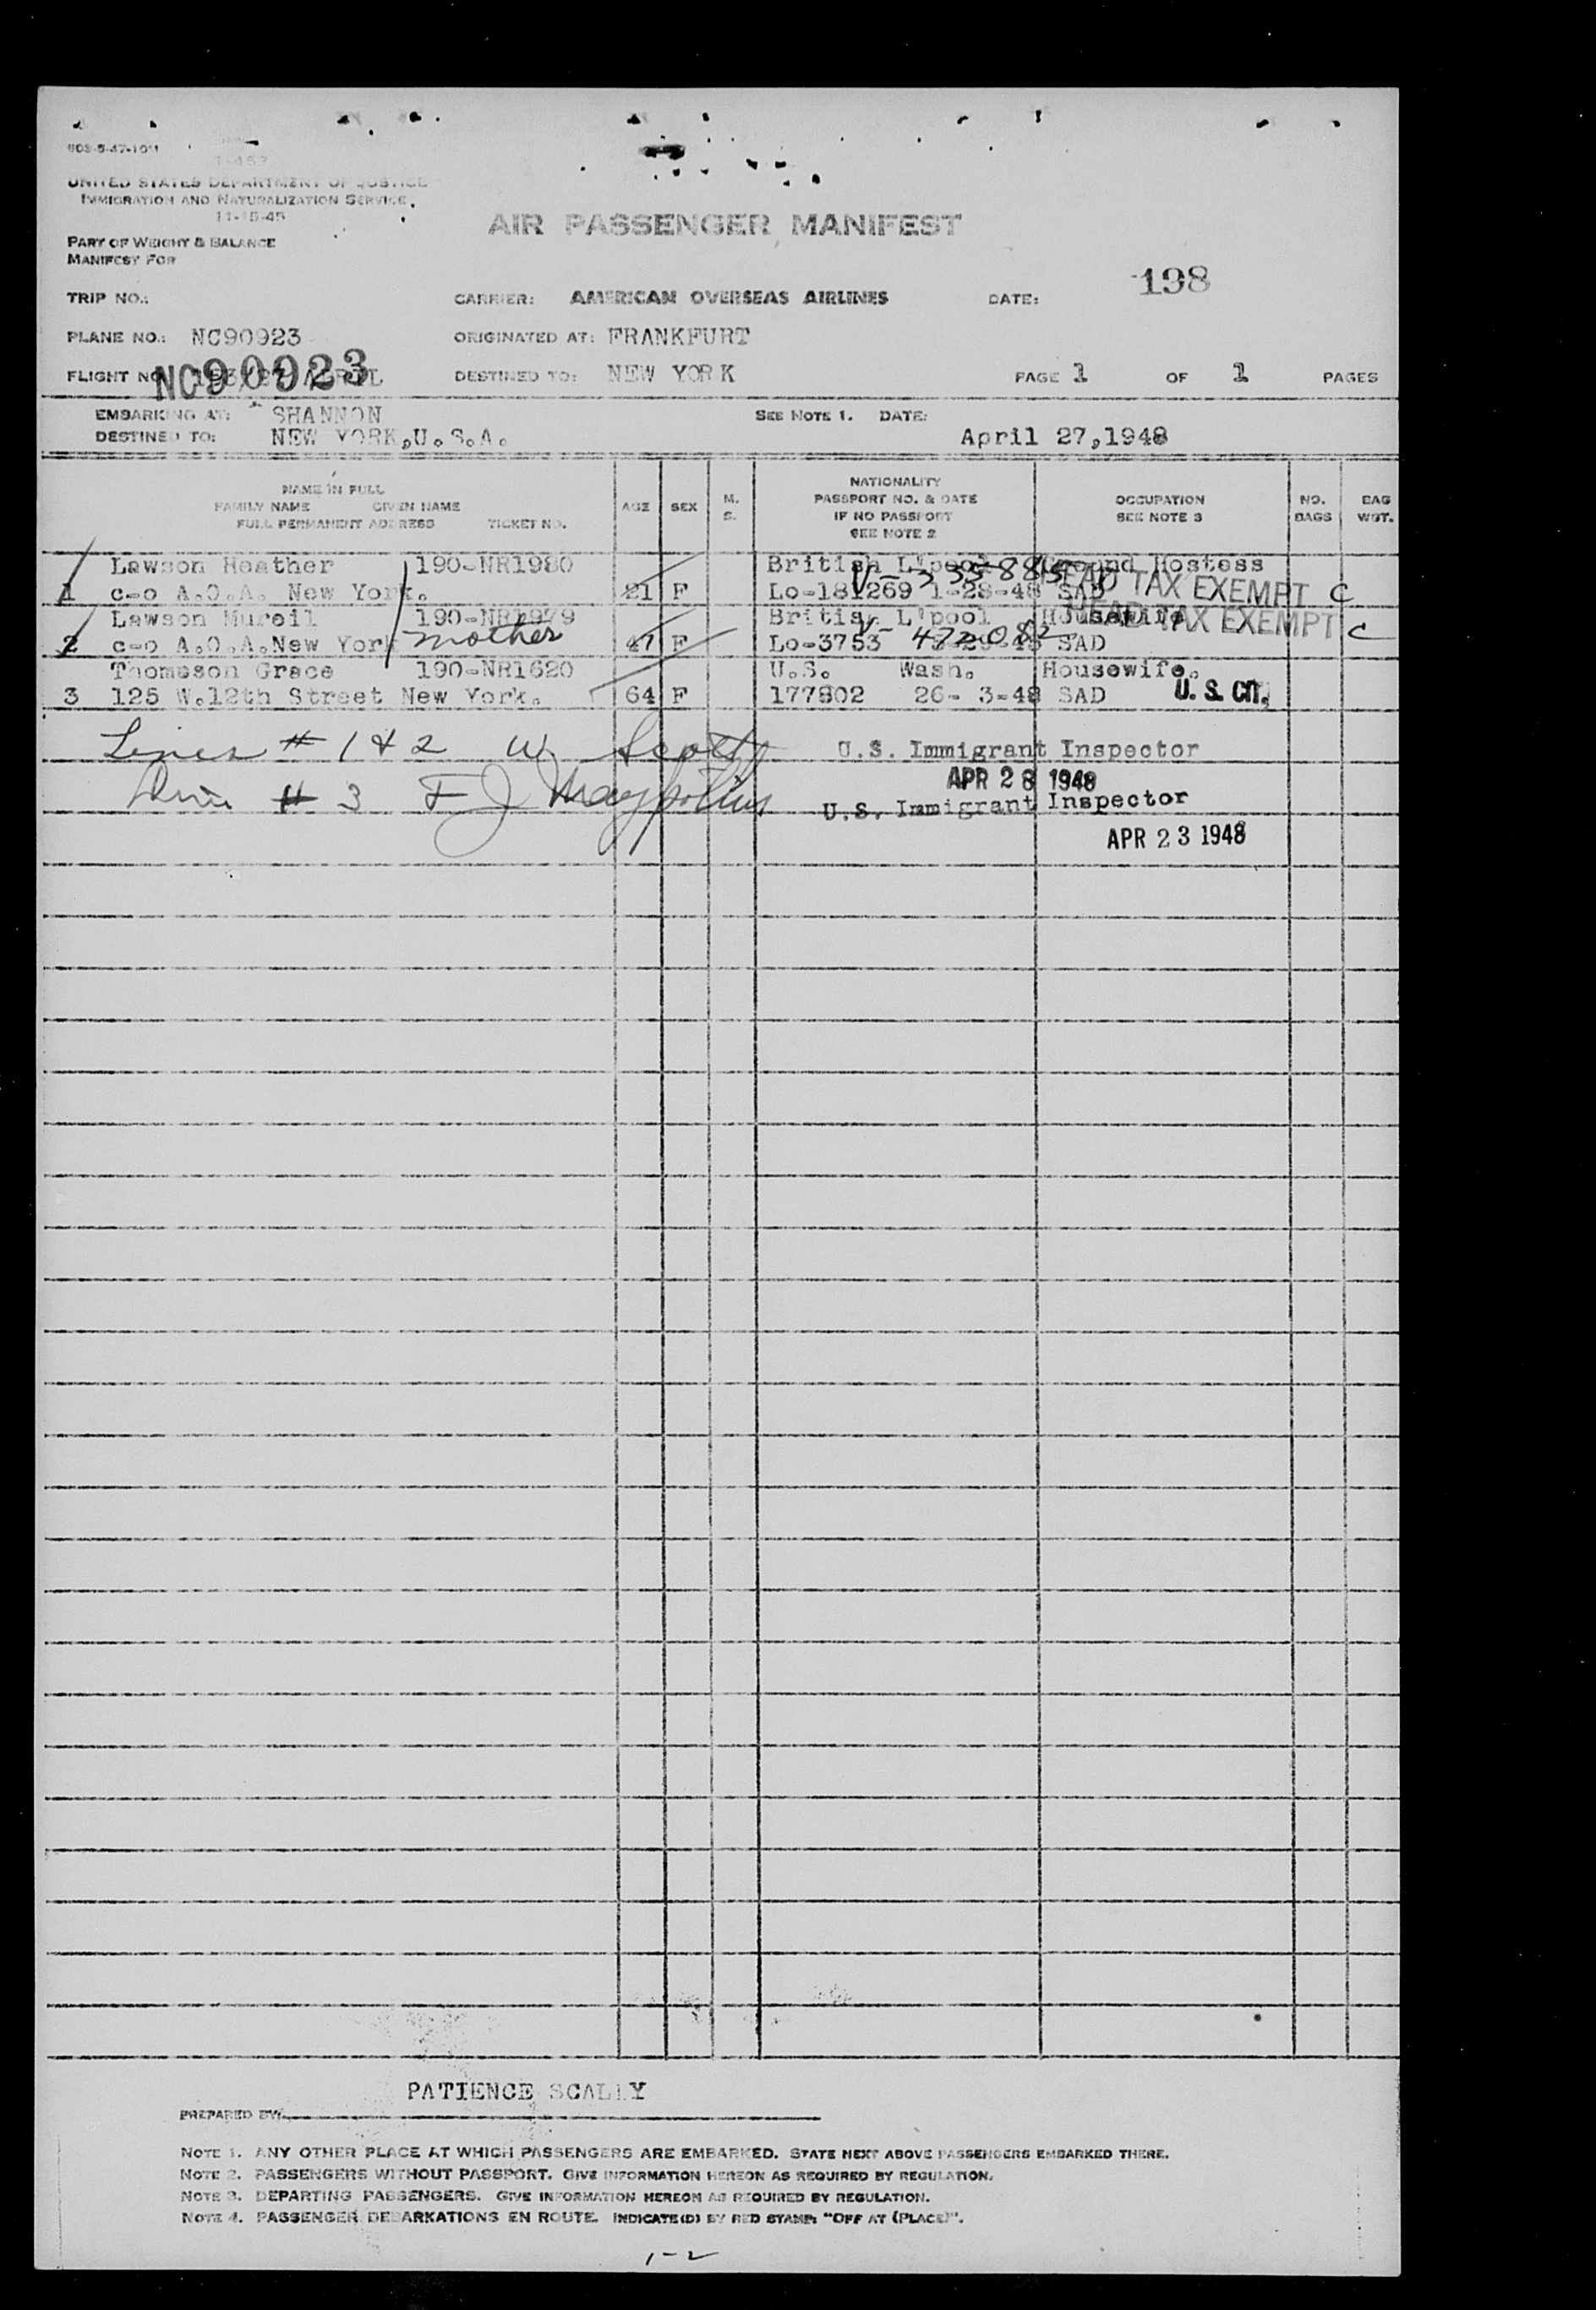 UNITED STATES DEPARTMENT OF JUSTICE
IMMIGRATION AND NATURALIZATION SERVICE
11-15-45
AIR PASSENGER MANIFEST
PART OF WEIGHT & BALANCE
MANIFEST FOR
198
TRIP NO.: CARRIER: AMERICAN OVERSEAS AIRLINES DATE:
PLANE NO.: NC90923 ORIGINATED AT: FRANKFURT
NC90923
FLIGHT NO DESTINED TO: NEW YORK PAGE 1 OF 1 PAGES
EMBARKING AT: SHANNON SEE NOTE 1. DATE:
DESTINED TO: NEW YORK,U.S.A. April 27,1948
NAME IN FULL
FAMILY NAME GIVEN NAME
FULL PERMANENT ADDRESS TICKET NO.
AGE SEX M. S.
NATIONALITY
PASSPORT NO. & DATE
IF NO PASSPORT
SEE NOTE 2
OCCUPATION
SEE NOTE 3
NO. BAGS
BAG WGT.
Lawson Heather 190-NR1980 British L'pool Ground Hostess
1 c-o A.O.A. New York. 21 F Lo-181269 1-28-48 SAD HEAD TAX EXEMPT C
Lawson Mureil 190-NR1979 British L'pool Housewife HEAD TAX EXEMPT
2 c-o A.O.A.New York mother 47 F Lo-3753 SAD C
Thomason Grace 190-NR1620 U.S. Wash. Housewife.
3 125 W.12th Street New York. 64 F 177802 26- 3-48 SAD U. S. CIT.
Lines # 1 & 2 W Scott U.S. Immigrant Inspector
APR 28 1948
Line # 3 F J U.S. Immigrant Inspector
APR 23 1948
PATIENCE SCALLY
PREPARED BY:
NOTE 1. ANY OTHER PLACE AT WHICH PASSENGERS ARE EMBARKED. STATE NEXT ABOVE PASSENGERS EMBARKED THERE.
NOTE 2. PASSENGERS WITHOUT PASSPORT. GIVE INFORMATION HEREON AS REQUIRED BY REGULATION.
NOTE 3. DEPARTING PASSENGERS. GIVE INFORMATION HEREON AS REQUIRED BY REGULATION.
NOTE 4. PASSENGER DEBARKATIONS EN ROUTE. INDICATE(D) BY RED STAMP: "OFF AT (PLACE)".
1-2